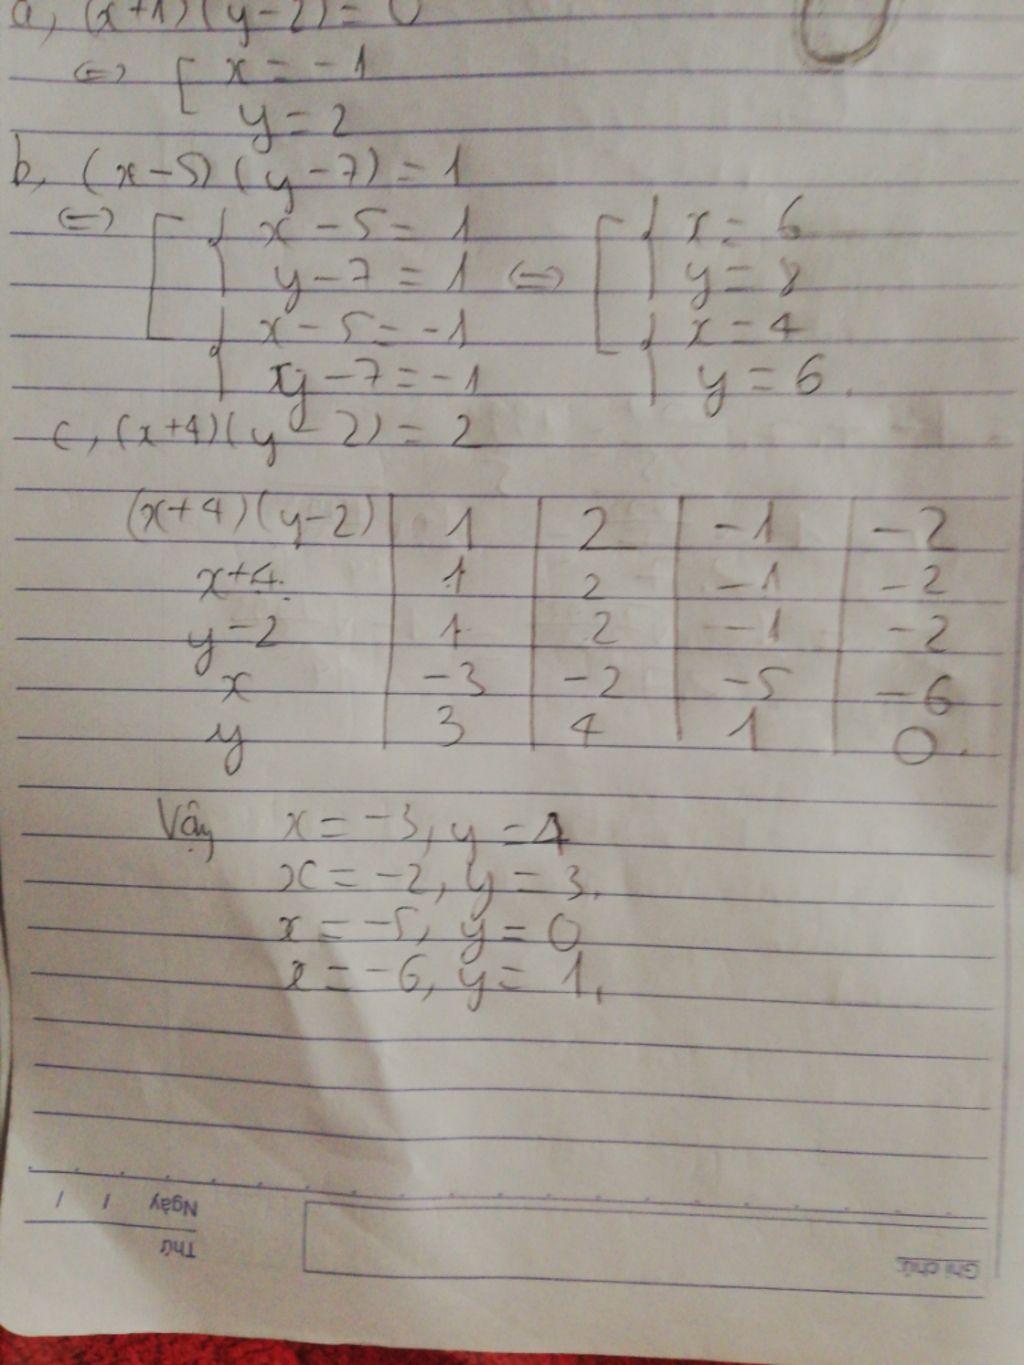 a, (x+1)(y-2)=0
⇔ [ x = -1
y = 2
b, (x-5)(y-7)=1
⇔ [ { x - 5 = 1
y - 7 = 1
{ x - 5 = -1
xy - 7 = -1
⇔ [ { x = 6
y = 8
{ x = 4
y = 6.
c, (x+4)(y-2) = 2
(x+4)(y-2) | 1 | 2 | -1 | -2
x+4 | 1 | 2 | -1 | -2
y-2 | 1 | 2 | -1 | -2
x | -3 | -2 | -5 | -6
y | 3 | 4 | 1 | 0.
Vậy x = -3, y = 4
x = -2, y = 3.
x = -5, y = 0
x = -6, y = 1.
Ngày / /
Thứ
Ghi chú: